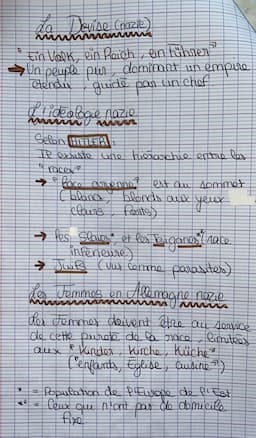 La Devise (nazie)
"Ein Volk, ein Reich, ein Führer"
→ Un peuple pur, dominant un empire
étendu, guidé par un chef.
L'idéologie nazie
Selon HITLER:
Il existe une hiérarchie entre les
"races"
→ "Race aryenne" est au sommet
(blancs, blonds aux yeux
clairs, forts)
→ les Slaves* et les Tziganes*² (race
inférieure)
→ Juifs (vu comme parasites)
Les Femmes en Allemagne nazie
Les femmes doivent être au service
de cette pureté de la race, limitées
aux "Kinder, Kirche, Küche"
("enfants, Église, cuisine")
* = Population de l'Europe de l'Est
*² = Ceux qui n'ont pas de domicile
fixe